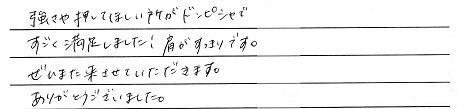 強さや押してほしい所がドンピシャで
すごく満足しました！肩がすっきりです。
ぜひまた来させていただきます。
ありがとうございました。